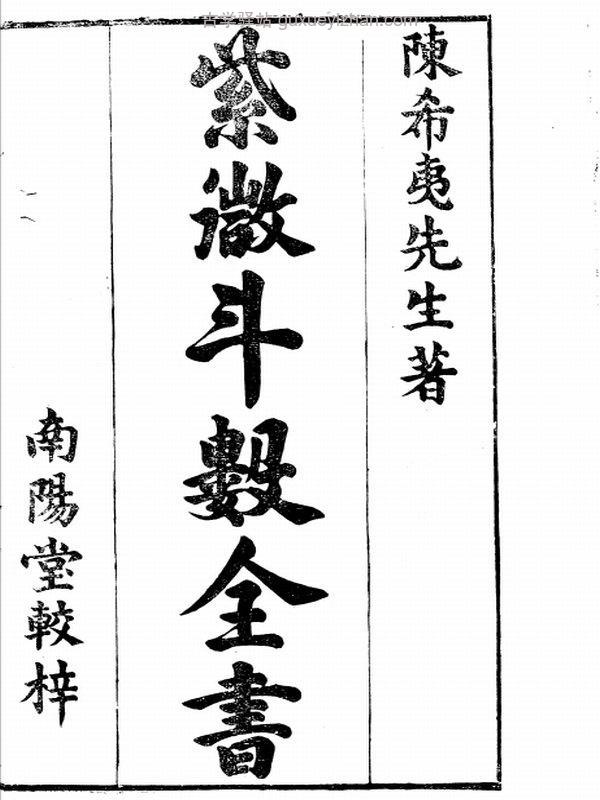 古学驿站 guxueyizhan.com
陳希夷先生著
紫微斗數全書
南陽堂較梓